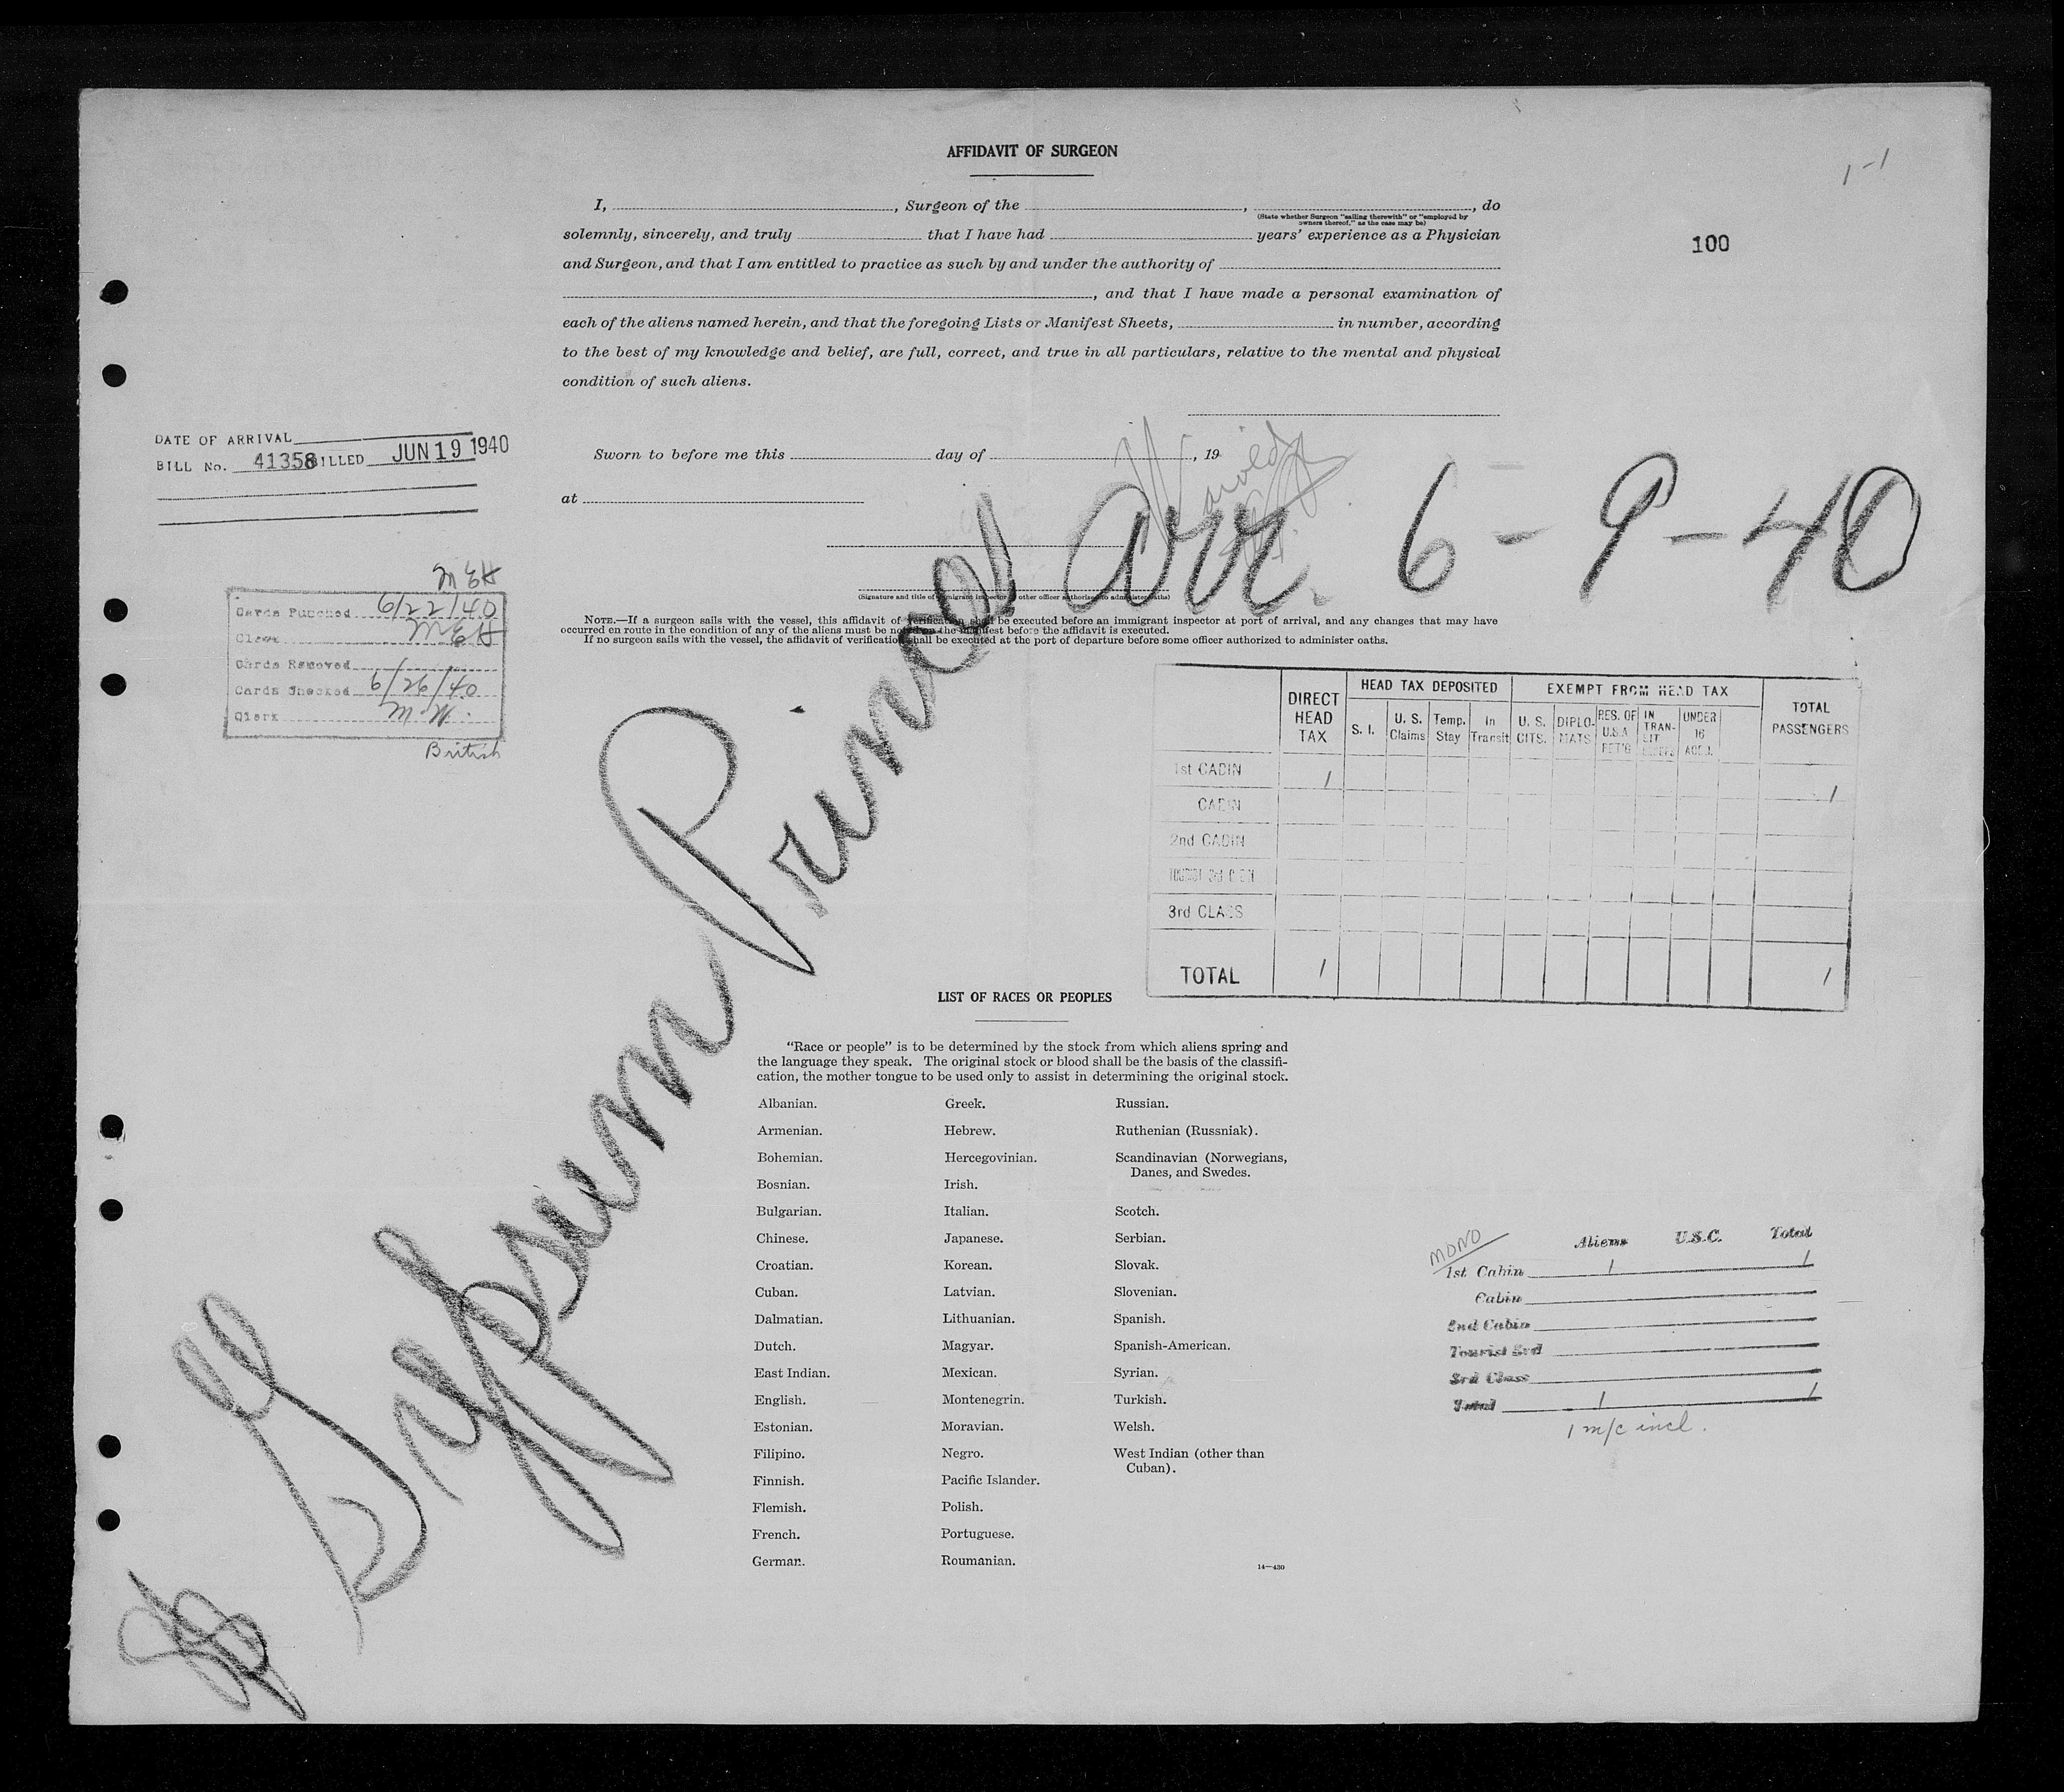 AFFIDAVIT OF SURGEON
1-1
100
I, , Surgeon of the , , do
(State whether Surgeon "sailing therewith" or "employed by
owners thereof," as the case may be)
solemnly, sincerely, and truly that I have had years' experience as a Physician
and Surgeon, and that I am entitled to practice as such by and under the authority of
, and that I have made a personal examination of
each of the aliens named herein, and that the foregoing Lists or Manifest Sheets, in number, according
to the best of my knowledge and belief, are full, correct, and true in all particulars, relative to the mental and physical
condition of such aliens.
Sworn to before me this day of , 19
at
(Signature and title of immigrant inspector or other officer authorized to administer oaths)
NOTE.—If a surgeon sails with the vessel, this affidavit of verification shall be executed before an immigrant inspector at port of arrival, and any changes that may have
occurred en route in the condition of any of the aliens must be noted on the manifest before the affidavit is executed.
If no surgeon sails with the vessel, the affidavit of verification shall be executed at the port of departure before some officer authorized to administer oaths.
DATE OF ARRIVAL
BILL No. 41358 BILLED JUN 19 1940
MEH
Cards Punched 6/22/40
Clerk MEH
Cards Removed
Cards Checked 6/26/40
Clerk M.W.
British
SS Gypsum Prince arr. 6-9-40
DIRECT HEAD TAX
HEAD TAX DEPOSITED
EXEMPT FROM HEAD TAX
TOTAL PASSENGERS
S. I. U. S. Claims Temp. Stay In Transit U. S. CITS. DIPLO-MATS RES. OF U.S.A. RET'G IN TRAN-SIT UNDER 16
1st CABIN 1 1
CABIN
2nd CABIN
TOURIST 3rd CABIN
3rd CLASS
TOTAL 1 1
LIST OF RACES OR PEOPLES
"Race or people" is to be determined by the stock from which aliens spring and
the language they speak. The original stock or blood shall be the basis of the classifi-
cation, the mother tongue to be used only to assist in determining the original stock.
Albanian.
Armenian.
Bohemian.
Bosnian.
Bulgarian.
Chinese.
Croatian.
Cuban.
Dalmatian.
Dutch.
East Indian.
English.
Estonian.
Filipino.
Finnish.
Flemish.
French.
German.
Greek.
Hebrew.
Hercegovinian.
Irish.
Italian.
Japanese.
Korean.
Latvian.
Lithuanian.
Magyar.
Mexican.
Montenegrin.
Moravian.
Negro.
Pacific Islander.
Polish.
Portuguese.
Roumanian.
Russian.
Ruthenian (Russniak).
Scandinavian (Norwegians,
Danes, and Swedes.
Scotch.
Serbian.
Slovak.
Slovenian.
Spanish.
Spanish-American.
Syrian.
Turkish.
Welsh.
West Indian (other than
Cuban).
14—430
MONO
Aliens U.S.C. Total
1st Cabin 1 1
Cabin
2nd Cabin
Tourist 3rd
3rd Class
Total 1 1
1 m/c incl.